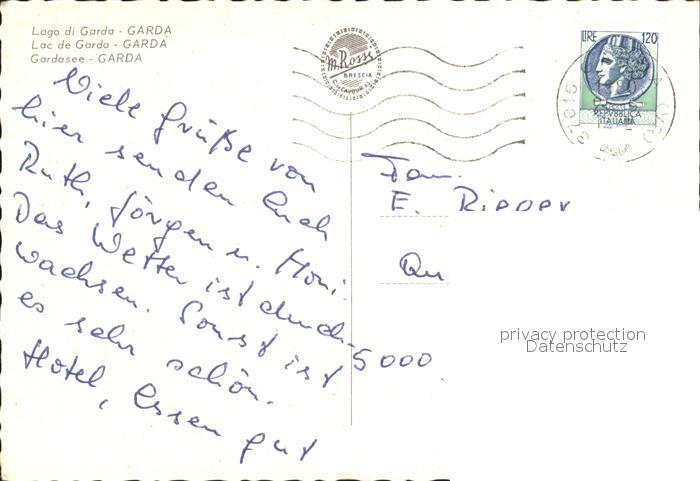 Lago di Garda - GARDA
Lac de Garda - GARDA
Gardasee - GARDA
Viele Grüße von
hier senden Euch
Ruth, Jörgen u. Honi.
Das Wetter ist durch-
wachsen. Sonst ist
es sehr schön.
Hotel, Essen gut
m. Rossi
BRESCIA
LIRE 120
REPVBBLICA
ITALIANA
37016
Fam.
E. Rieger
Qu
5000
privacy protection
Datenschutz